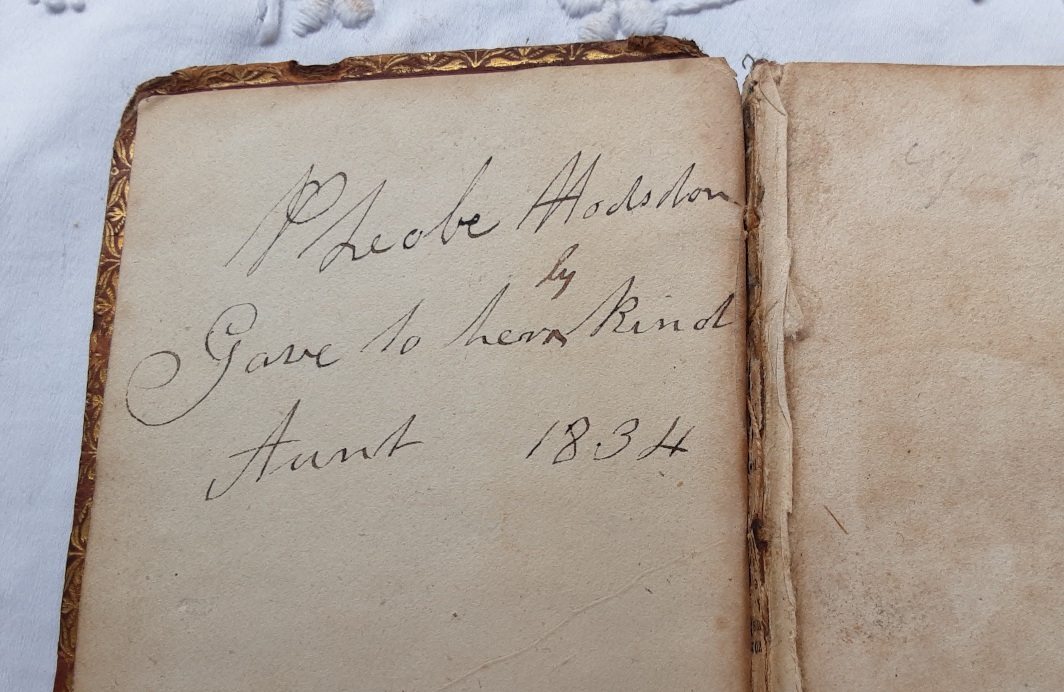 Pheobe Hodsdon
Gave to her by kind
Aunt 1834